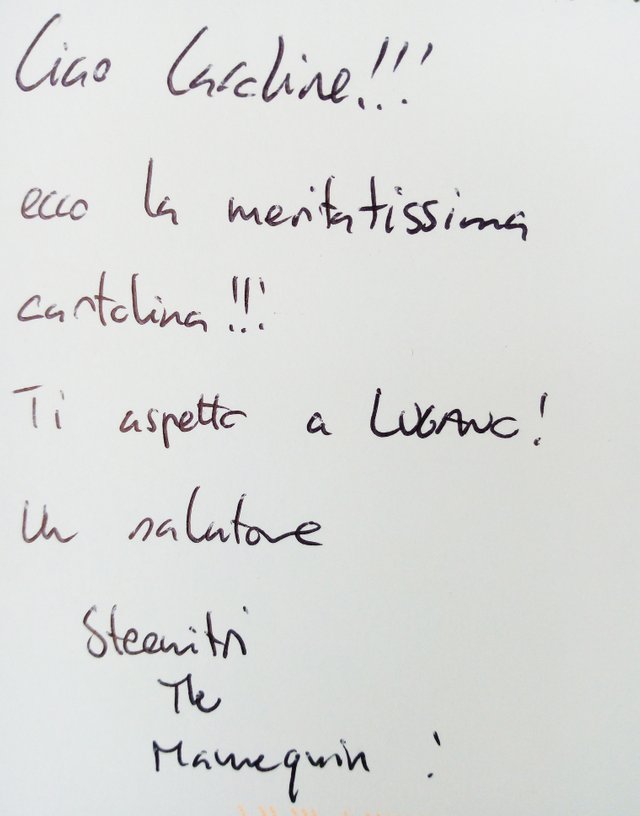 Ciao Caroline!!!
ecco la meritatissima
cartolina!!!
Ti aspetto a LUGANO!
Un salutone
The
Mannequin!